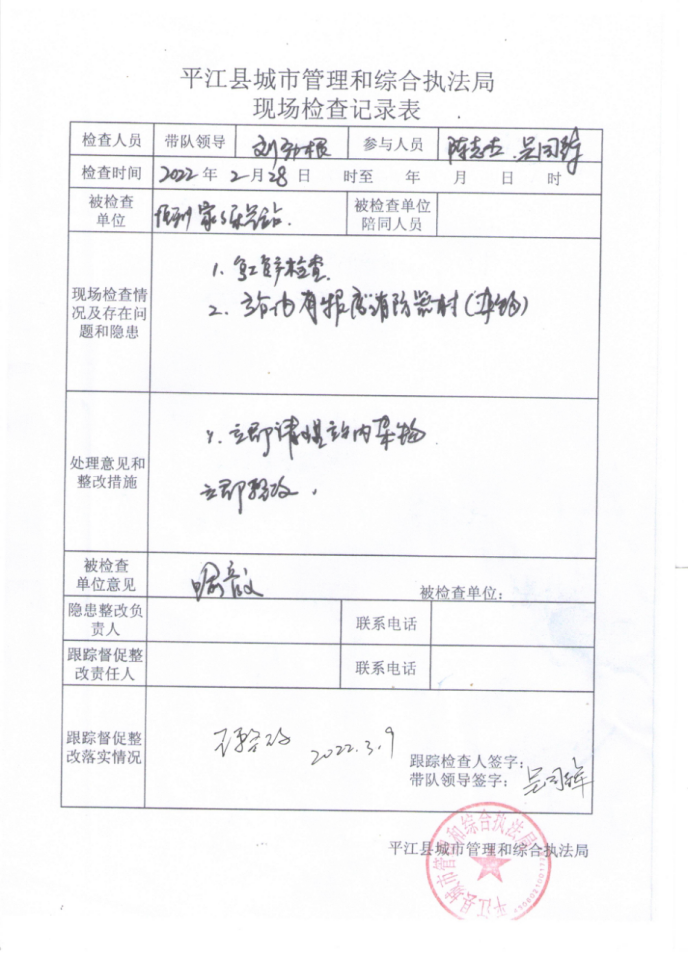 平江县城市管理和综合执法局
现场检查记录表
检查人员 带队领导 参与人员 陈志杰、吴司锋
检查时间 2022年 2月28日 时至 年 月 日 时
被检查单位 被检查单位陪同人员
现场检查情况及存在问题和隐患
1. 检查.
2. 站内有报废消防器材(杂物)
处理意见和整改措施
1. 立即清理站内杂物
立即整改.
被检查单位意见 被检查单位:
隐患整改负责人 联系电话
跟踪督促整改责任人 联系电话
跟踪督促整改落实情况
已整改 2022.3.9
跟踪检查人签字:
带队领导签字:
平江县城市管理和综合执法局
平江县城市管理和综合执法局